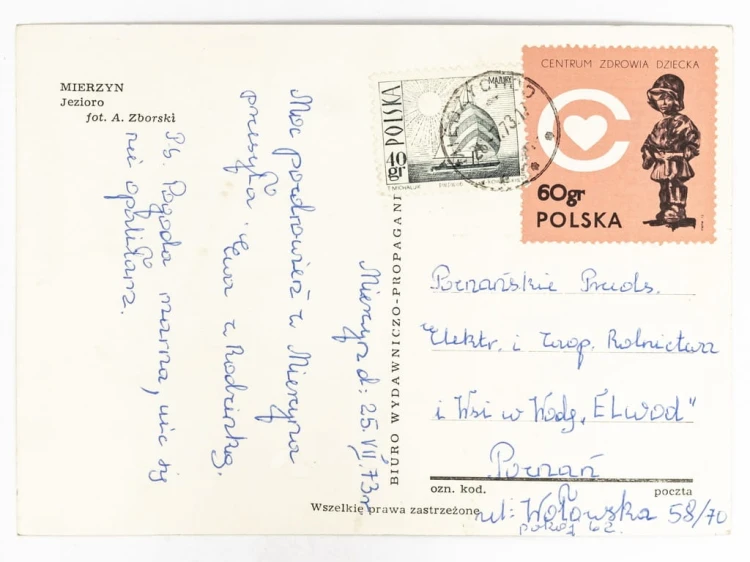 MIERZYN
Jezioro
fot. A. Zborski
Mierzyn d: 25.VII.73r
Moc pozdrowień z Mierzyna
przesyła Ewa z Rodzinką.
P.S. Pogoda marna, nic się
nie opaliłam.
BIURO WYDAWNICZO-PROPAGAN
MAZURY
POLSKA
40 gr
T. MICHALUK
CENTRUM ZDROWIA DZIECKA
60gr
POLSKA
73
Poznańskie Przeds.
Elektr. i Zaop. Rolnictwa
i Wsi w Wodę „ELWOD"
Poznań
ozn. kod. poczta
ul: Wołowska 58/70
pokój 62.
Wszelkie prawa zastrzeżone